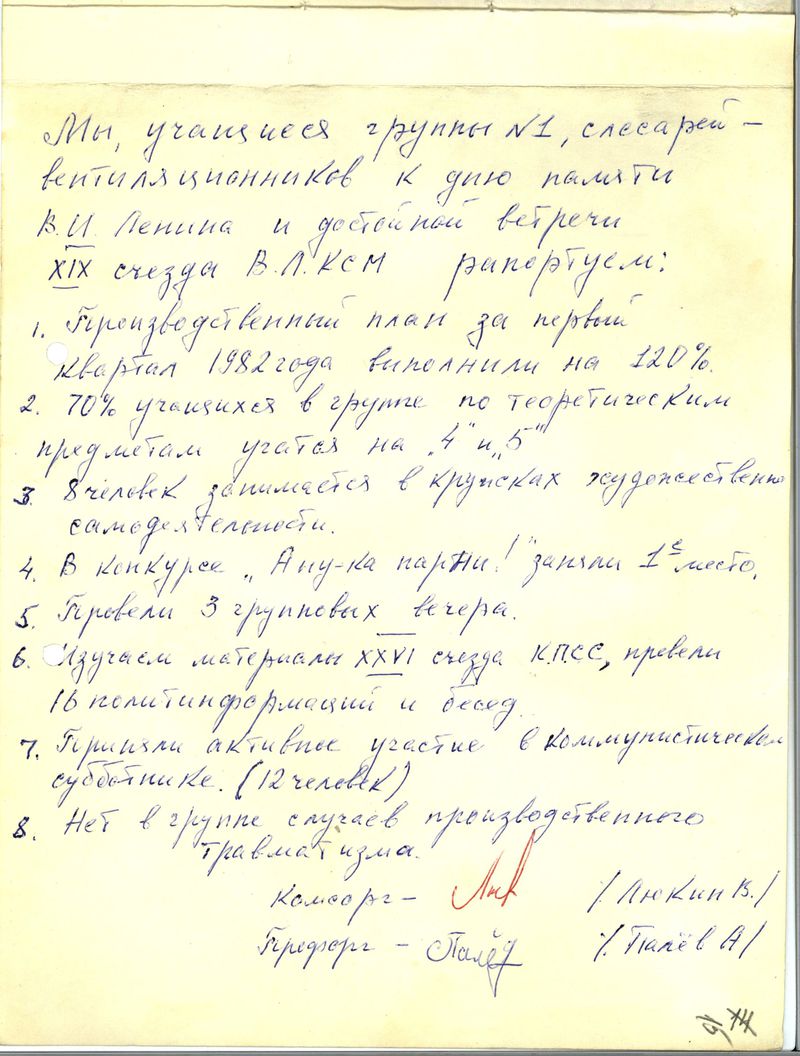 Мы, учащиеся группы №1, слесарей-
вентиляционников к дню памяти
В.И. Ленина и достойной встречи
XIX съезда В.Л.КСМ рапортуем:
1. Производственный план за первый
квартал 1982 года выполнили на 120%.
2. 70% учащихся в группе по теоретическим
предметам учатся на „4" и „5"
3. 8 человек занимается в кружках художественно
самодеятельности.
4. В конкурсе „А ну-ка парни!" заняли 1е место.
5. Провели 3 групповых вечера.
6. Изучаем материалы XXVI съезда К.П.СС, провели
16 политинформаций и бесед.
7. Приняли активное участие в коммунистическом
субботнике. (12 человек)
8. Нет в группе случаев производственного
травматизма.
Комсорг – /Люкин В./
Профорг – Палёв /Палёв А/